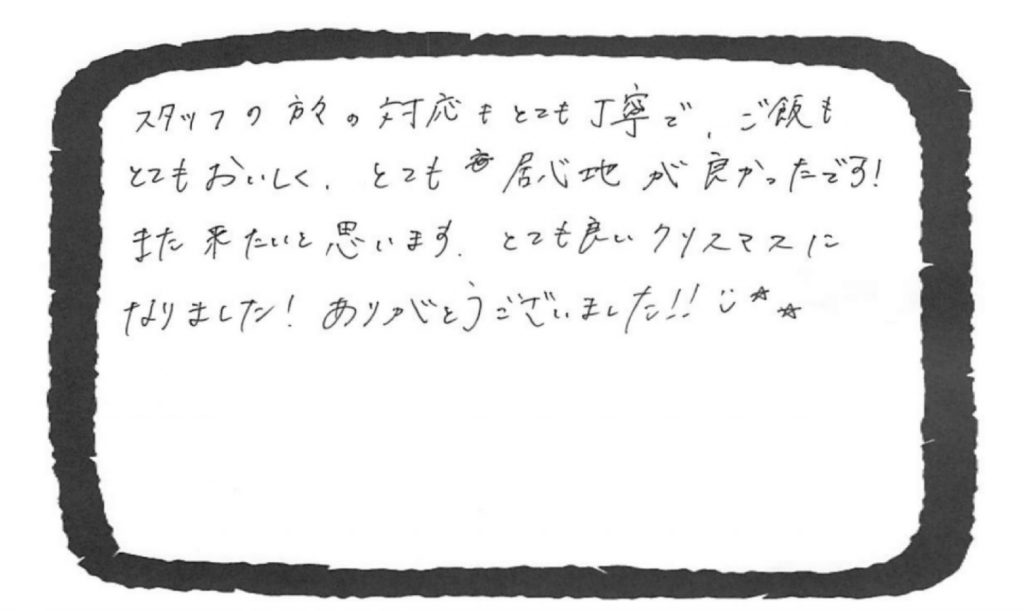 スタッフの方々の対応もとても丁寧で、ご飯も
とてもおいしく、とても居心地が良かったです!
また来たいと思います。とても良いクリスマスに
なりました! ありがとうございました!! ☺☆☆